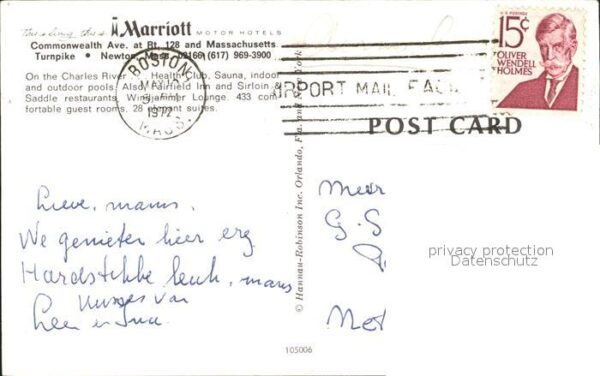 Marriott MOTOR HOTELS
Commonwealth Ave. at Rt. 128 and Massachusetts
Turnpike • Newton, Mass. 02166 (617) 969-3900
On the Charles River Health Club, Sauna, indoor
and outdoor pools. Also Fairfield Inn and Sirloin &
Saddle restaurants. Windjammer Lounge. 433 com-
fortable guest rooms. 28 elegant suites.
BOSTON
MAY
1972
MASS.
AIRPORT MAIL
U.S. POSTAGE
15¢
OLIVER
WENDELL
HOLMES
POST CARD
© Hannau-Robinson Inc. Orlando, Fla. and New York
Lieve, mams.
We genieten hier erg
Hardstikke leuk, mams
Kusjes van
en
Meer
G. S
Met
privacy protection
Datenschutz
105006